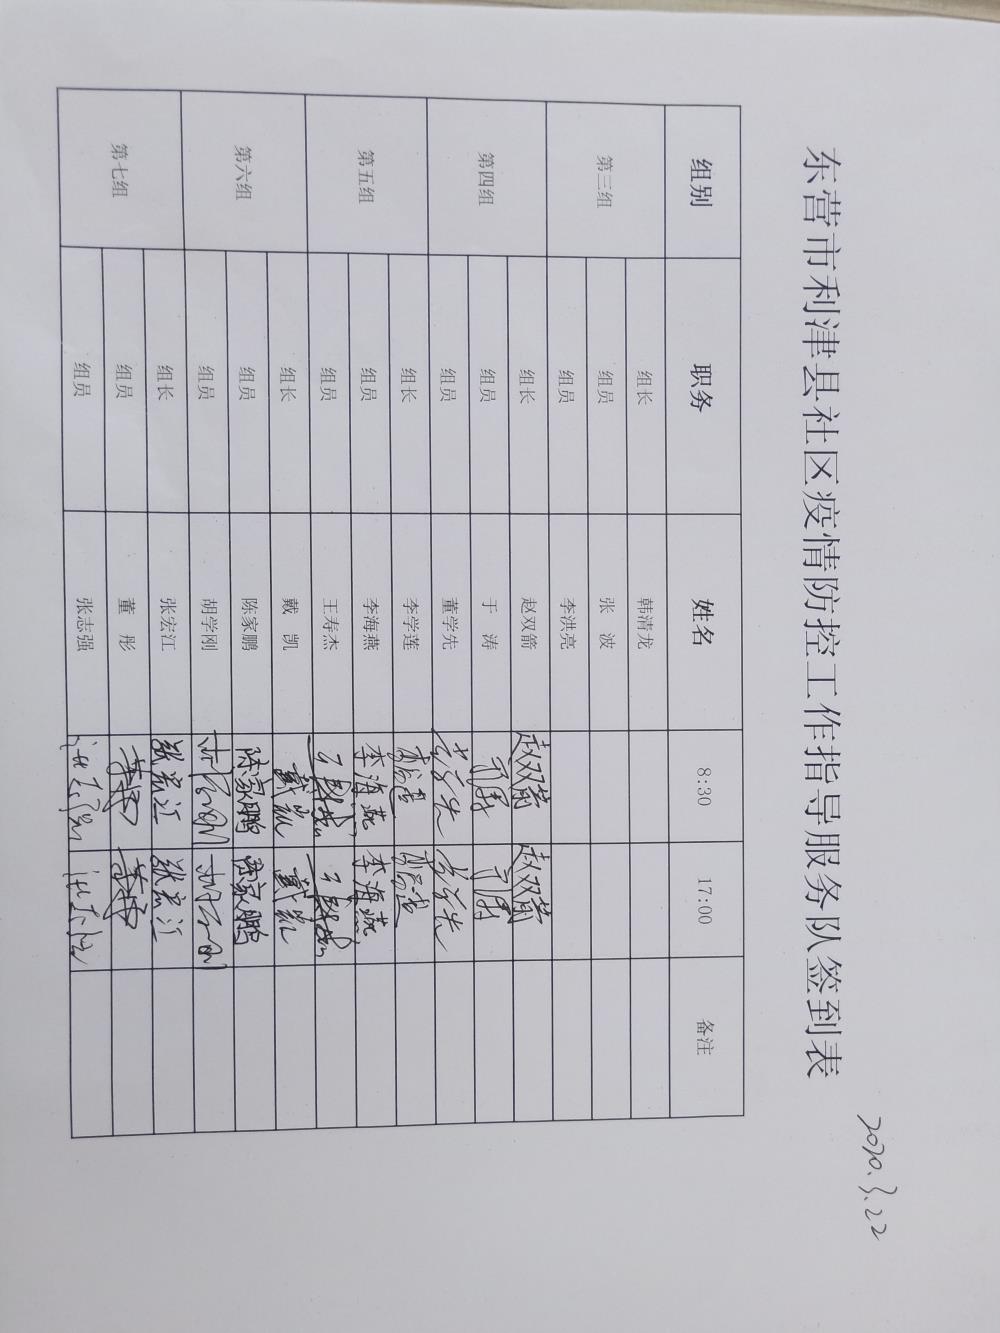 2020.3.22
东营市利津县社区疫情防控工作指导服务队签到表
组别 职务 姓名 8:30 17:00 备注
第三组 组长 韩清龙
组员 张 波
组员 李洪亮
第四组 组长 赵双箭 赵双箭 赵双箭
组员 于 涛 于涛 于涛
组员 董学先 董学先 董学先
第五组 组长 李学莲 李学莲 李学莲
组员 李海燕 李海燕 李海燕
组员 王寿杰
第六组 组长 戴 凯 戴凯 戴凯
组员 陈家鹏 陈家鹏 陈家鹏
组员 胡学刚 胡学刚 胡学刚
第七组 组长 张宏江 张宏江 张宏江
组员 董 彤 董彤 董彤
组员 张志强 张志强 张志强